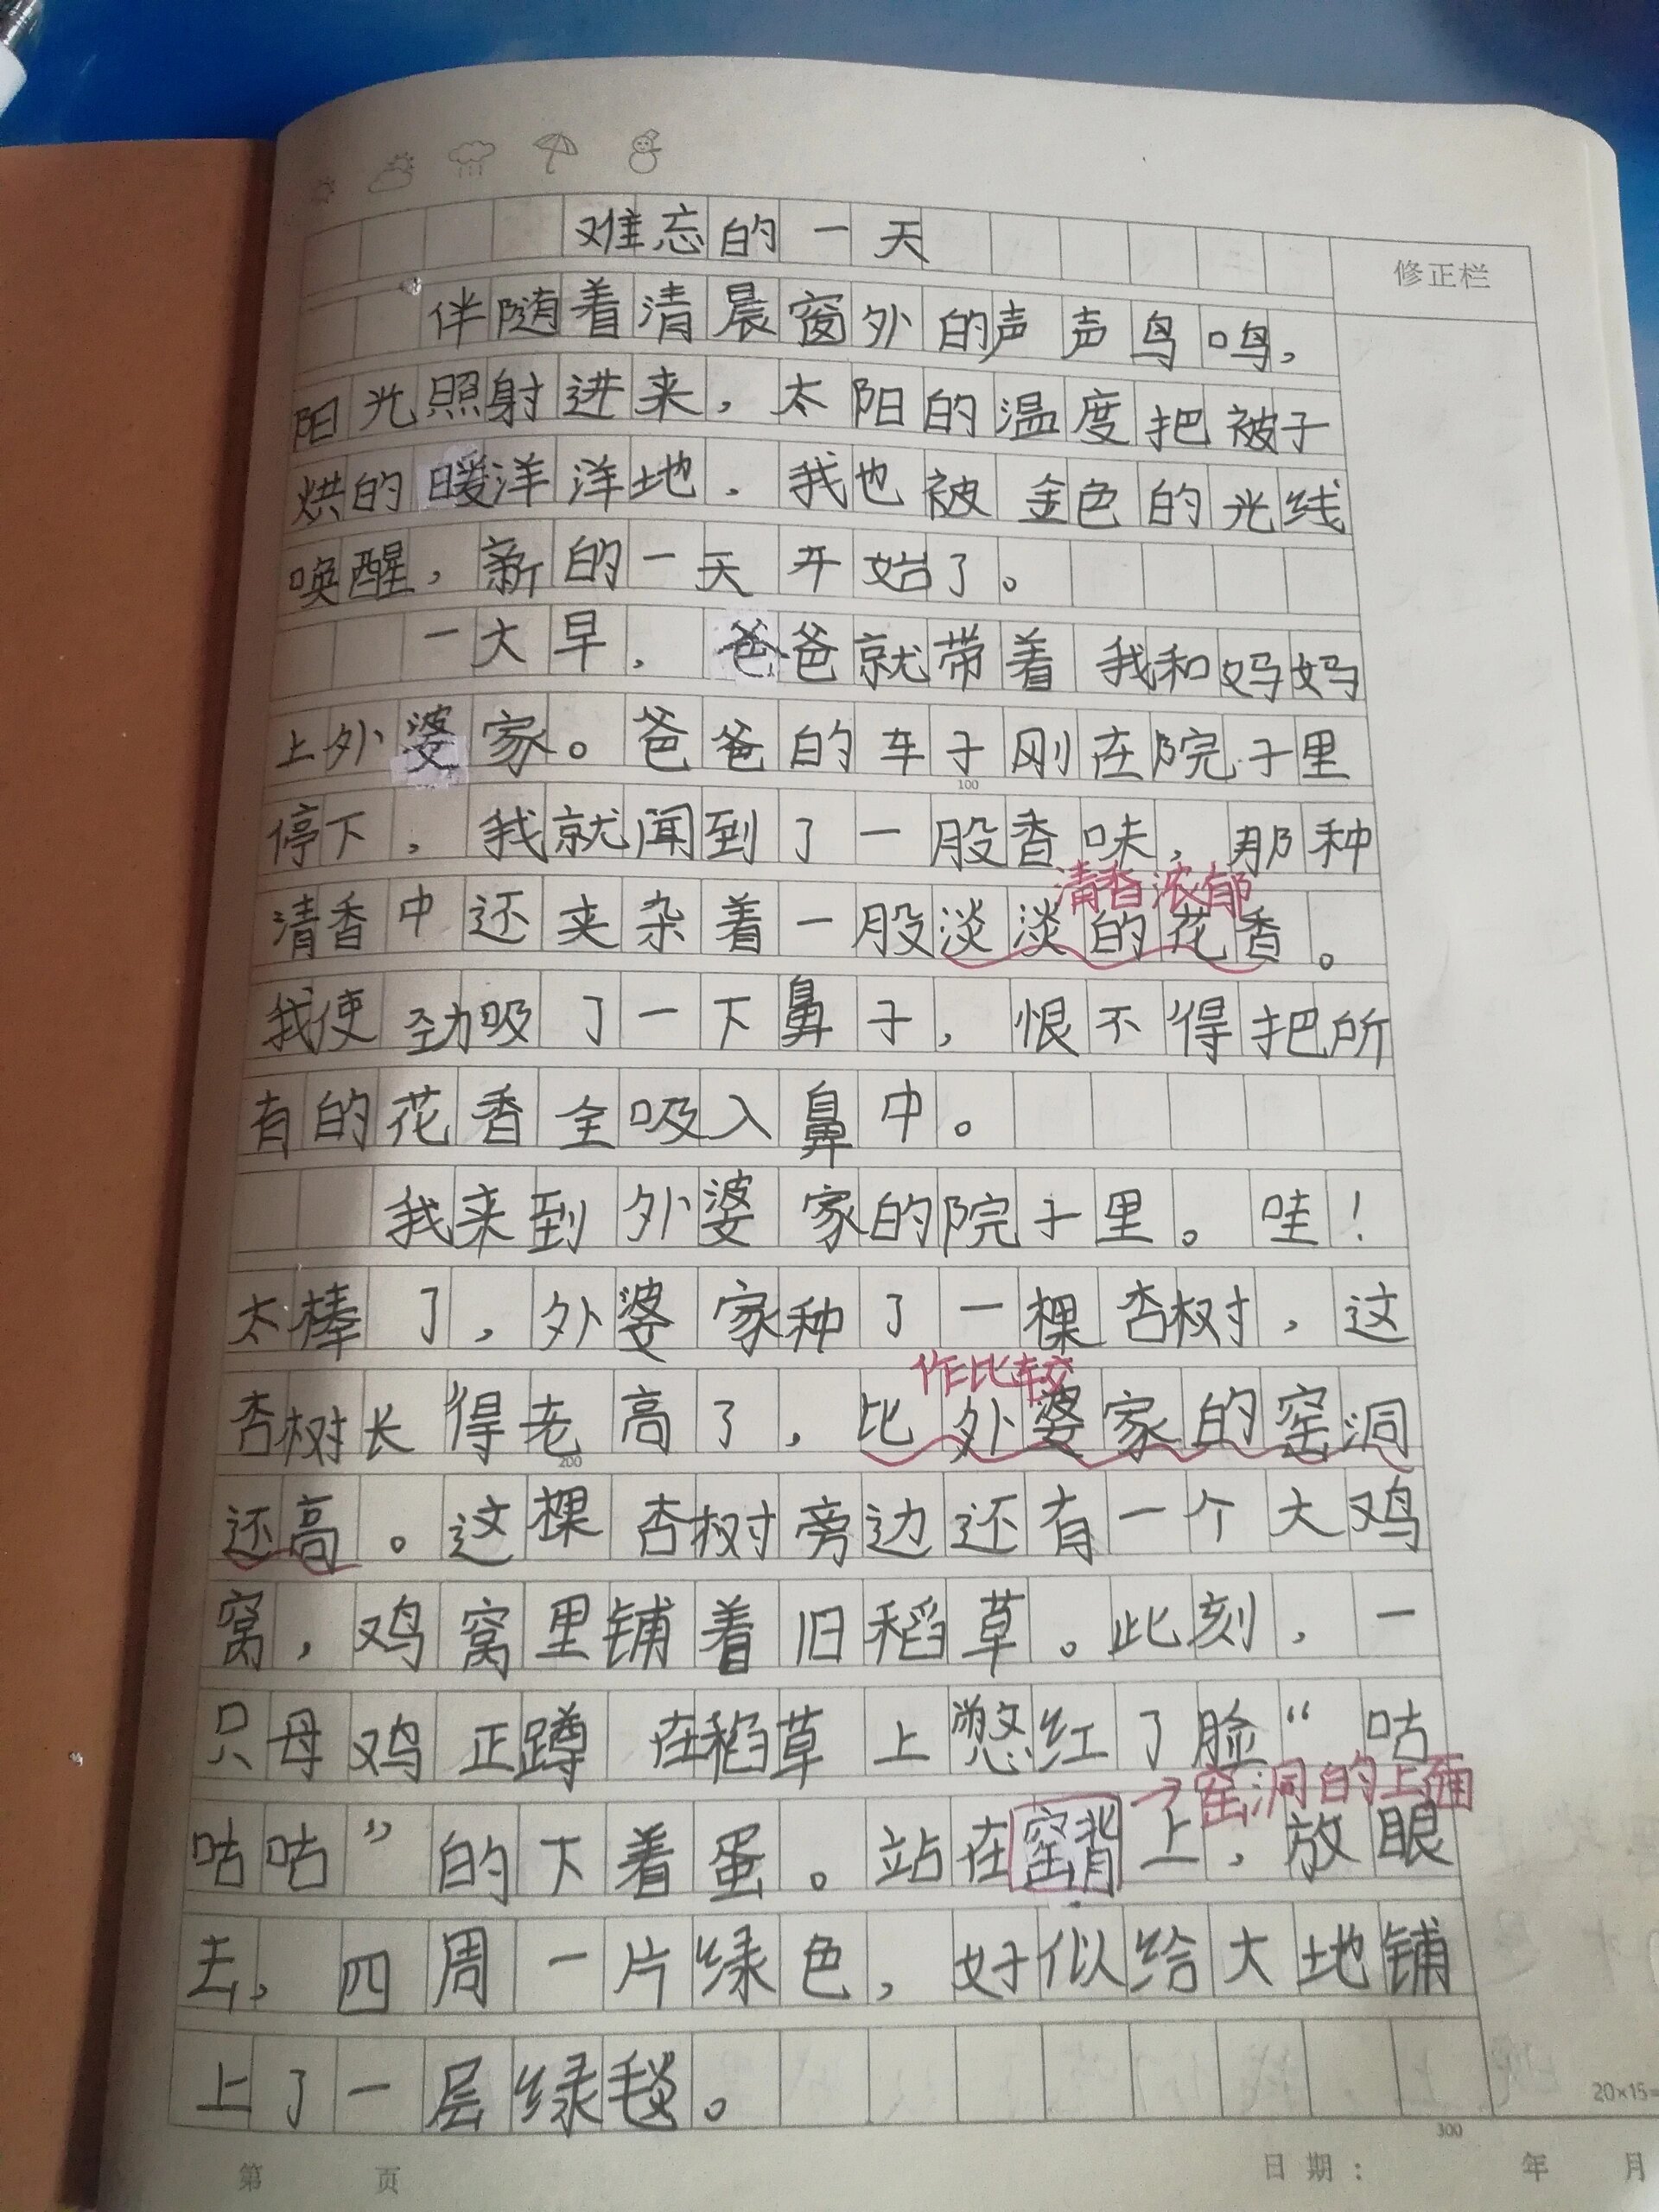 难忘的一天
修正栏
伴随着清晨窗外的声声鸟鸣,
阳光照射进来,太阳的温度把被子
烘的暖洋洋地,我也被金色的光线
唤醒,新的一天开始了。
一大早,爸爸就带着我和妈妈
上外婆家。爸爸的车子刚在院子里
100
停下,我就闻到了一股香味,那种
清香浓郁
清香中还夹杂着一股淡淡的花香。
我使劲吸了一下鼻子,恨不得把所
有的花香全吸入鼻中。
我来到外婆家的院子里。哇!
太棒了,外婆家种了一棵杏树,这
作比较
杏树长得老高了,比外婆家的窑洞
200
还高。这棵杏树旁边还有一个大鸡
窝,鸡窝里铺着旧稻草。此刻,一
只母鸡正蹲在稻草上憋红了脸“咕
→窑洞的上面
咕咕”的下着蛋。站在窑背上,放眼
去,四周一片绿色,好似给大地铺
上了一层绿毯。
20×15=
300
第 页
日期: 年 月